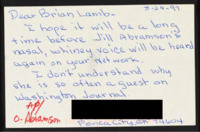 Dear Brian Lamb- 3-28-97
I hope it will be a long
time before Jill Abramson's
nasal, whiney voice will be heard
again on your network.
I don't understand why
she is so often a guest on
Washington Journal
O. Abramson
Ponca City, OK 74604